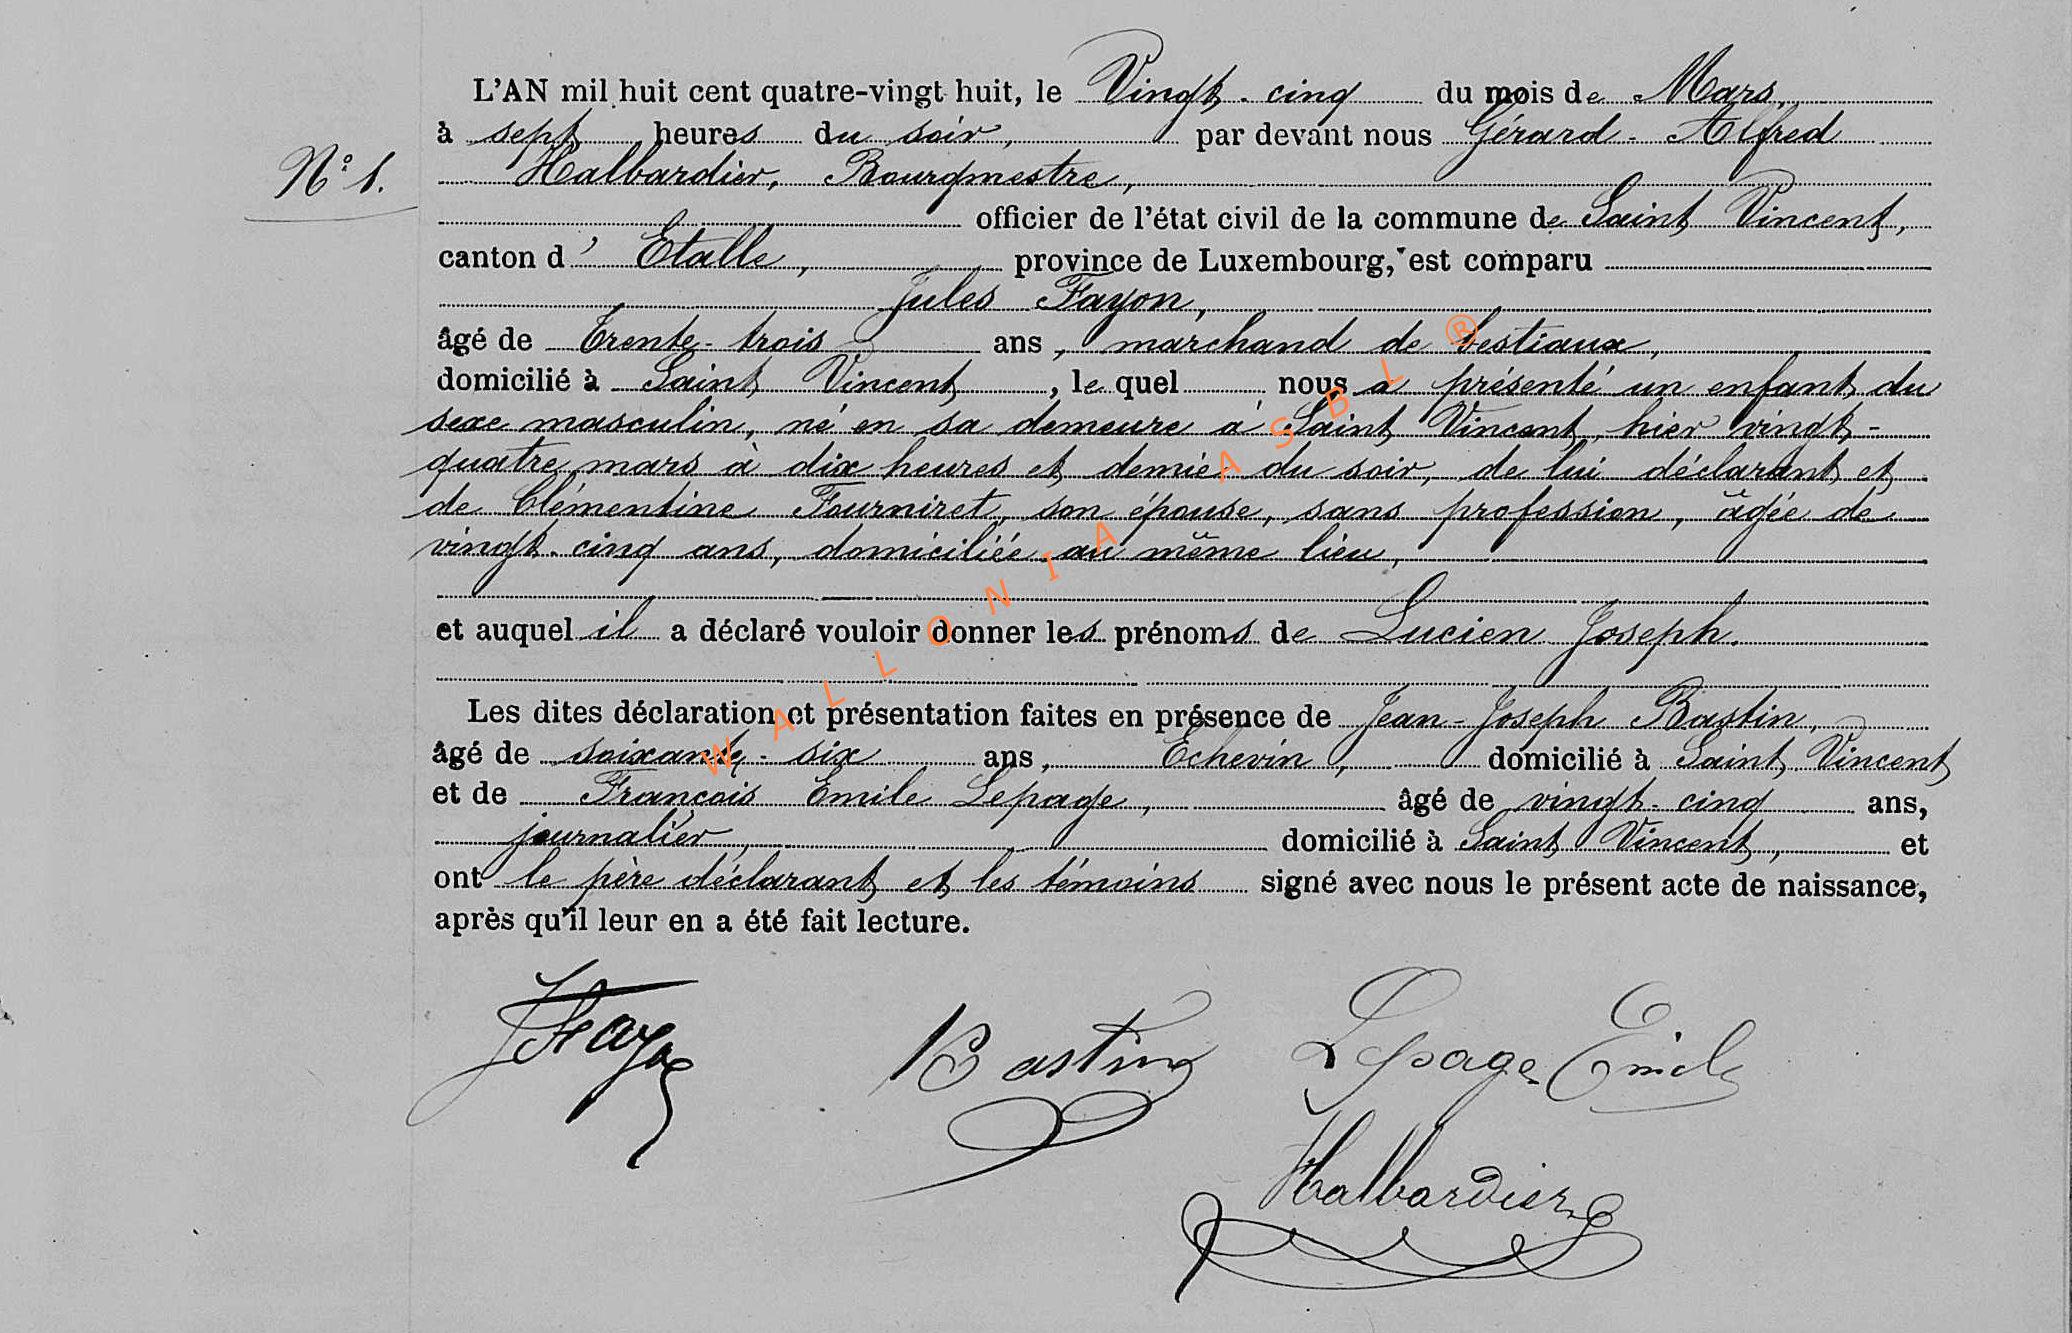 L'AN mil huit cent quatre-vingt huit, le Vingt-cinq du mois de Mars,
à sept heures du soir, par devant nous Gérard-Alfred
N° 1.
Halbardier, Bourgmestre,
officier de l'état civil de la commune de Saint Vincent,
canton d' Etalle, province de Luxembourg, est comparu
Jules Fayon,
âgé de Trente-trois ans, marchand de bestiaux,
domicilié à Saint Vincent, lequel nous a présenté un enfant du
sexe masculin, né en sa demeure à Saint Vincent, hier vingt-
quatre mars à dix heures et demie du soir, de lui déclarant et
de Clémentine Fourniret, son épouse, sans profession, âgée de
vingt-cinq ans, domiciliée au même lieu,
et auquel il a déclaré vouloir donner les prénoms de Lucien Joseph.
Les dites déclaration et présentation faites en présence de Jean-Joseph Bastin,
âgé de soixante-six ans, Echevin, domicilié à Saint Vincent
et de François Emile Lepage, âgé de vingt-cinq ans,
journalier, domicilié à Saint Vincent, et
ont le père déclarant et les témoins signé avec nous le présent acte de naissance,
après qu'il leur en a été fait lecture.
JFayon Bastin Lepage Emile
Halbardier
WALLONIA ASBL ®